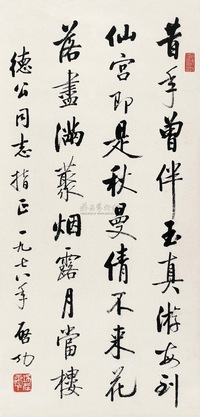 昔年曾伴玉真游每到
仙宫即是秋曼倩不来花
落盡滿藂烟露月當樓
德公同志指正一九七八年 啟功